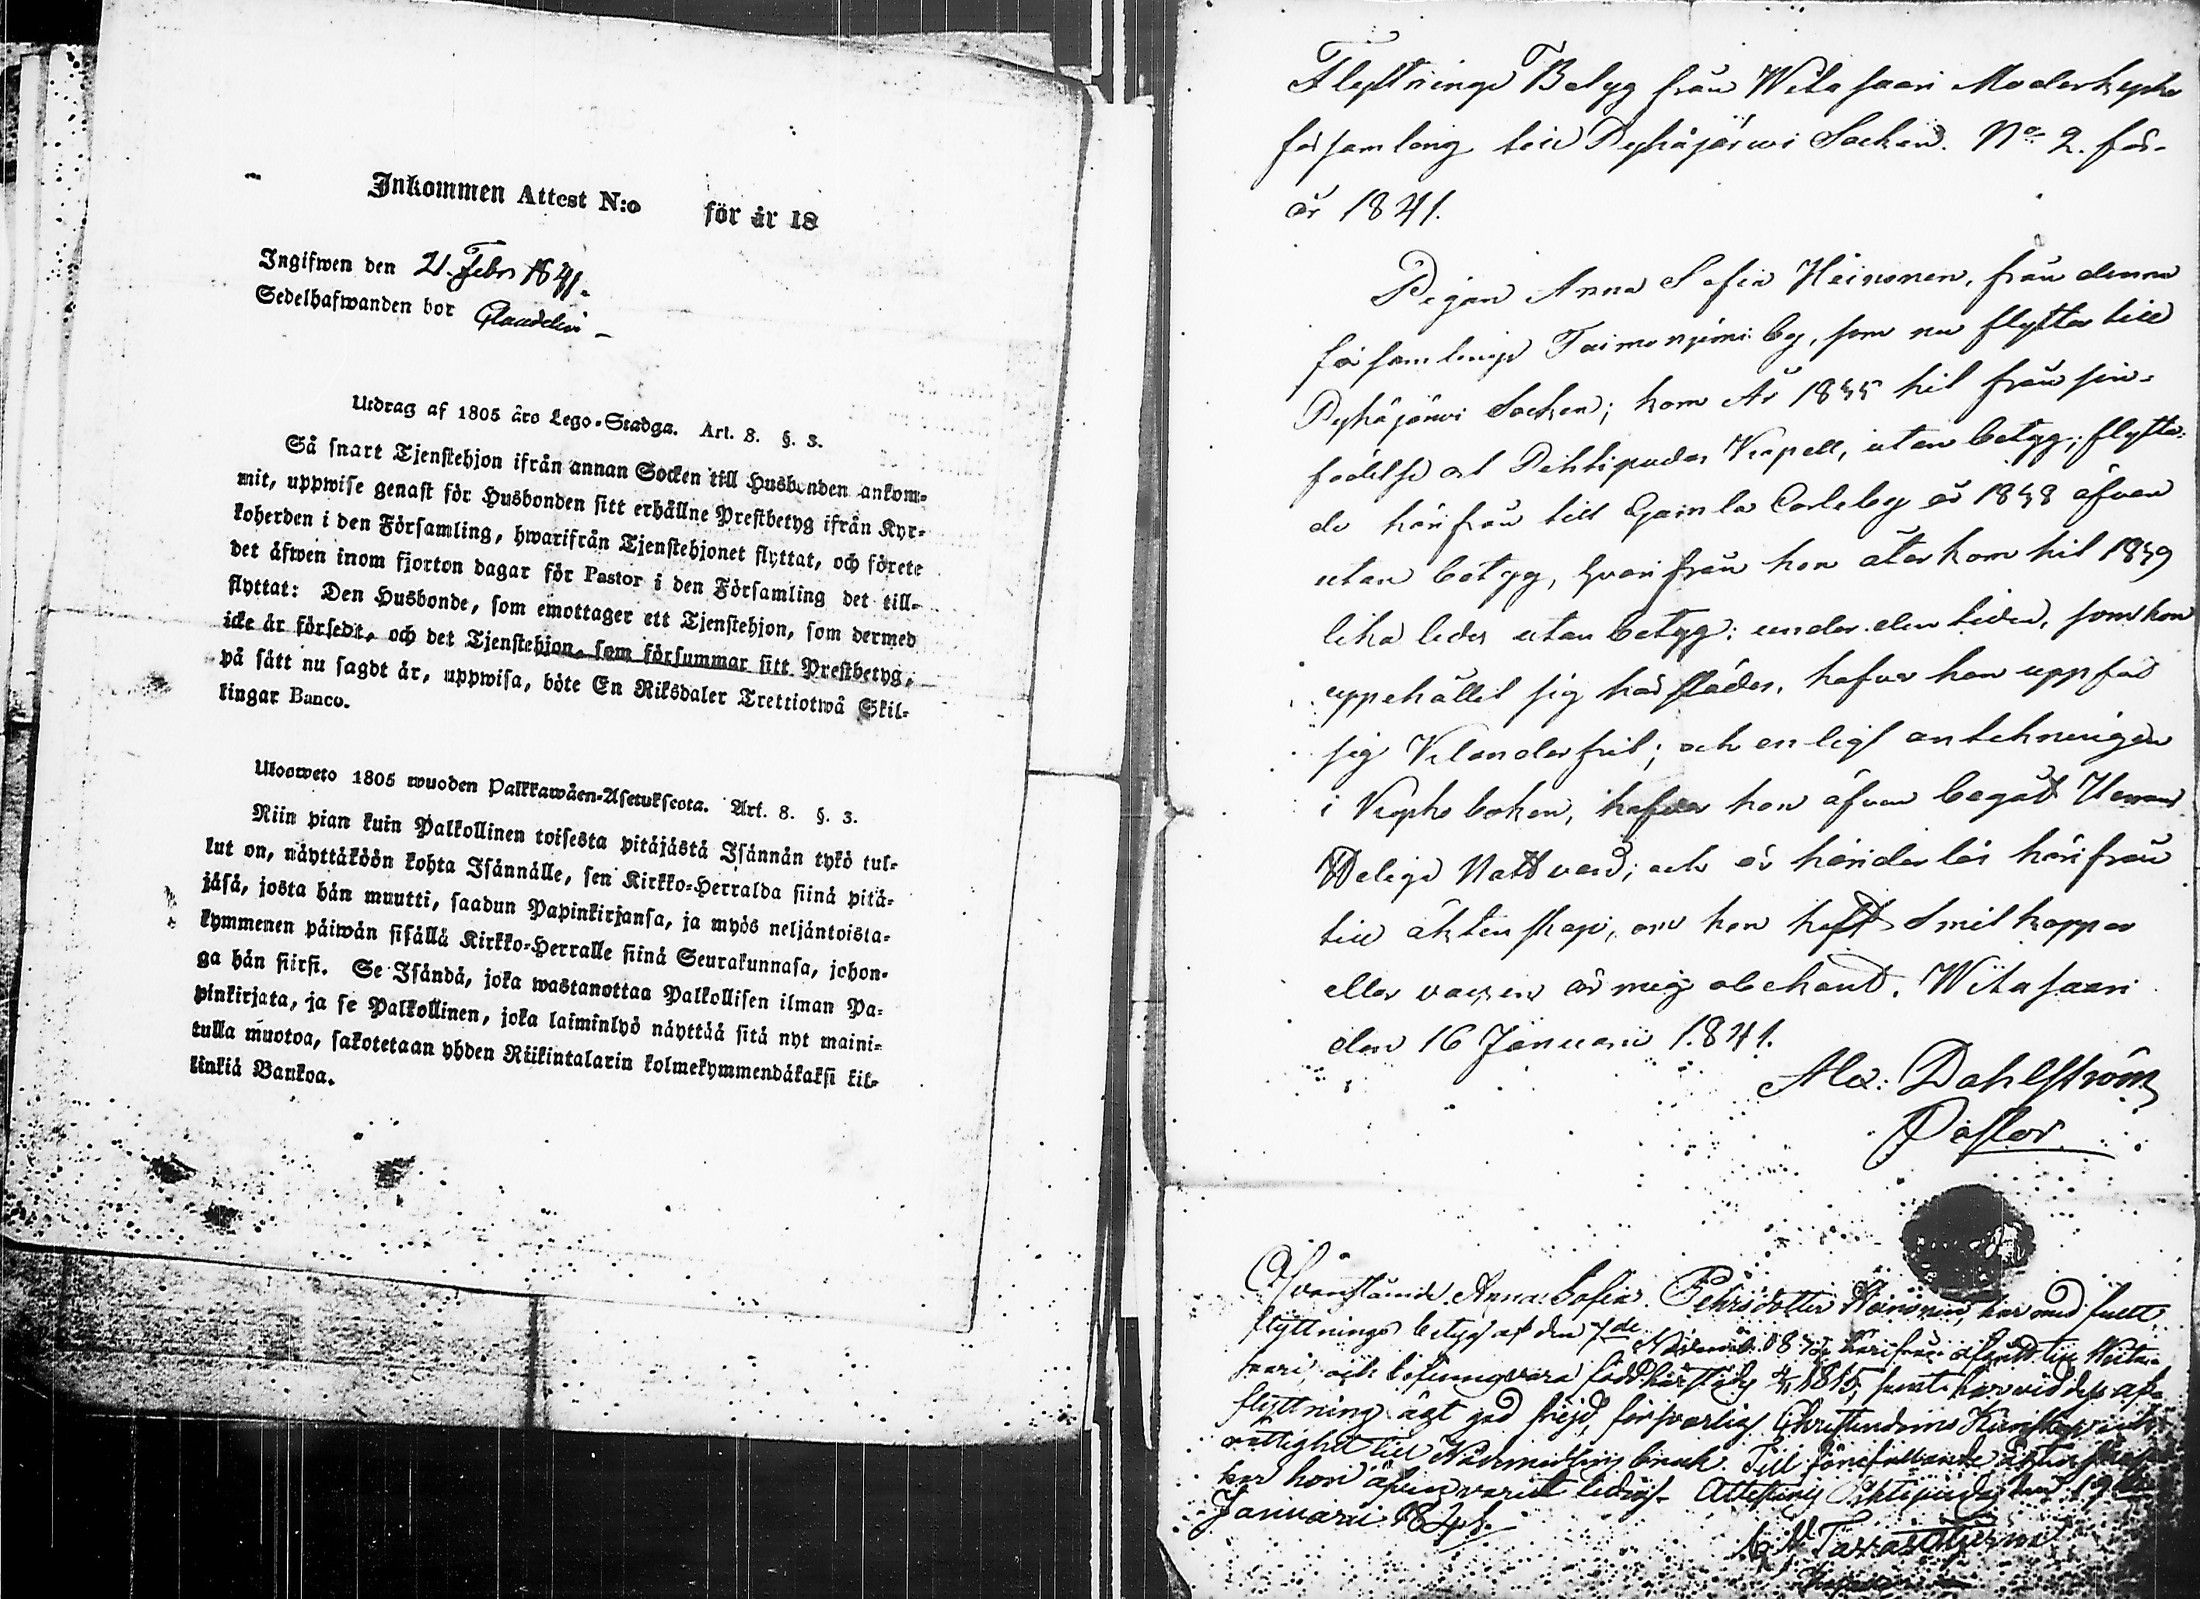 Inkommen Attest N:o för år 18
Ingifwen den 21. Febr 1841.
Sedelhafwanden bor
Utdrag af 1805 års Lego-Stadga. Art. 8. §. 3.
Så snart Tjenstehjon ifrån annan Socken till Husbonden ankom-
mit, uppwise genast för Husbonden sitt erhållne Prestbetyg ifrån Kyr-
koherden i den Församling, hwarifrån Tjenstehjonet flyttat, och förete
det äfwen inom fjorton dagar för Pastor i den Församling det till-
flyttat: Den Husbonde, som emottager ett Tjenstehjon, som dermed
icke är försedt, och det Tjenstehjon, som försummar sitt Prestbetyg,
på sätt nu sagdt är, uppwisa, böte En Riksdaler Trettiotwå Skil-
lingar Banco.
Ulosweto 1805 wuoden Palkkawäen-Asetuksesta. Art. 8. §. 3.
Niin pian kuin Palkollinen toisesta pitäjästä Isännän tykö tul-
lut on, näyttäköön kohta Isännälle, sen Kirkko-Herralda siinä pitä-
jäsä, josta hän muutti, saadun Papinkirjansa, ja myös neljäntoista-
kymmenen päiwän sisällä Kirkko-Herralle siinä Seurakunnasa, johon-
ga hän siirsi. Se Isändä, joka wastanottaa Palkollisen ilman Pa-
pinkirjata, ja se Palkollinen, joka laiminlyö näyttää sitä nyt maini-
tulla muotoa, sakotetaan yhden Riikintalarin kolmekymmendäkaksi kil-
linkiä Bankoa.
Flyttnings Betyg från Witasaari Moderkyrko
församling till Pyhäjärwi Socken. No 2. för
år 1841.
Pigan Anna Sofia Heinonen, från denna
församlings Taimoniemi by, som nu flyttar till
Pyhäjärwi Socken; kom År 1835 hit från sin
födelse ort Pihtipudas Kapell, utan betyg; flytta-
de härifrån till Gamla Carleby år 1838 äfven
utan betyg, hvarifrån hon återkom hit 1839
lika ledes utan betyg; under den tiden, som hon
uppehållet sig här städes, hafver hon uppfört
sig klanderfrit; och enligt antekningen
i Kyrkoboken, hafver hon äfven begått Herrans
Heliga Nattvard; och är hinderlös härifrån
till äktenskap, om hon haft Smitkoppor
eller vaccin är mig obekant. Witasaari
den 16 Januarii 1841.
Alex: Dahlström
Pastor
Ofvanstående Anna Sofia Pehrsdotter Heinonen, har med
flyttnings betyg af den 7de härifrån afflytt till Wiita-
saari, och befinnes vara född härstädes 1815, samt har vid dess af-
flyttning ägt god frejd, försvarlig Christendoms Kunskap och
rättighet till Nådemedlens bruk. Till förefallande äktenskap
har hon äfven varit ledig. Attesteras Pihtipudas den 19
Januarii 1841.